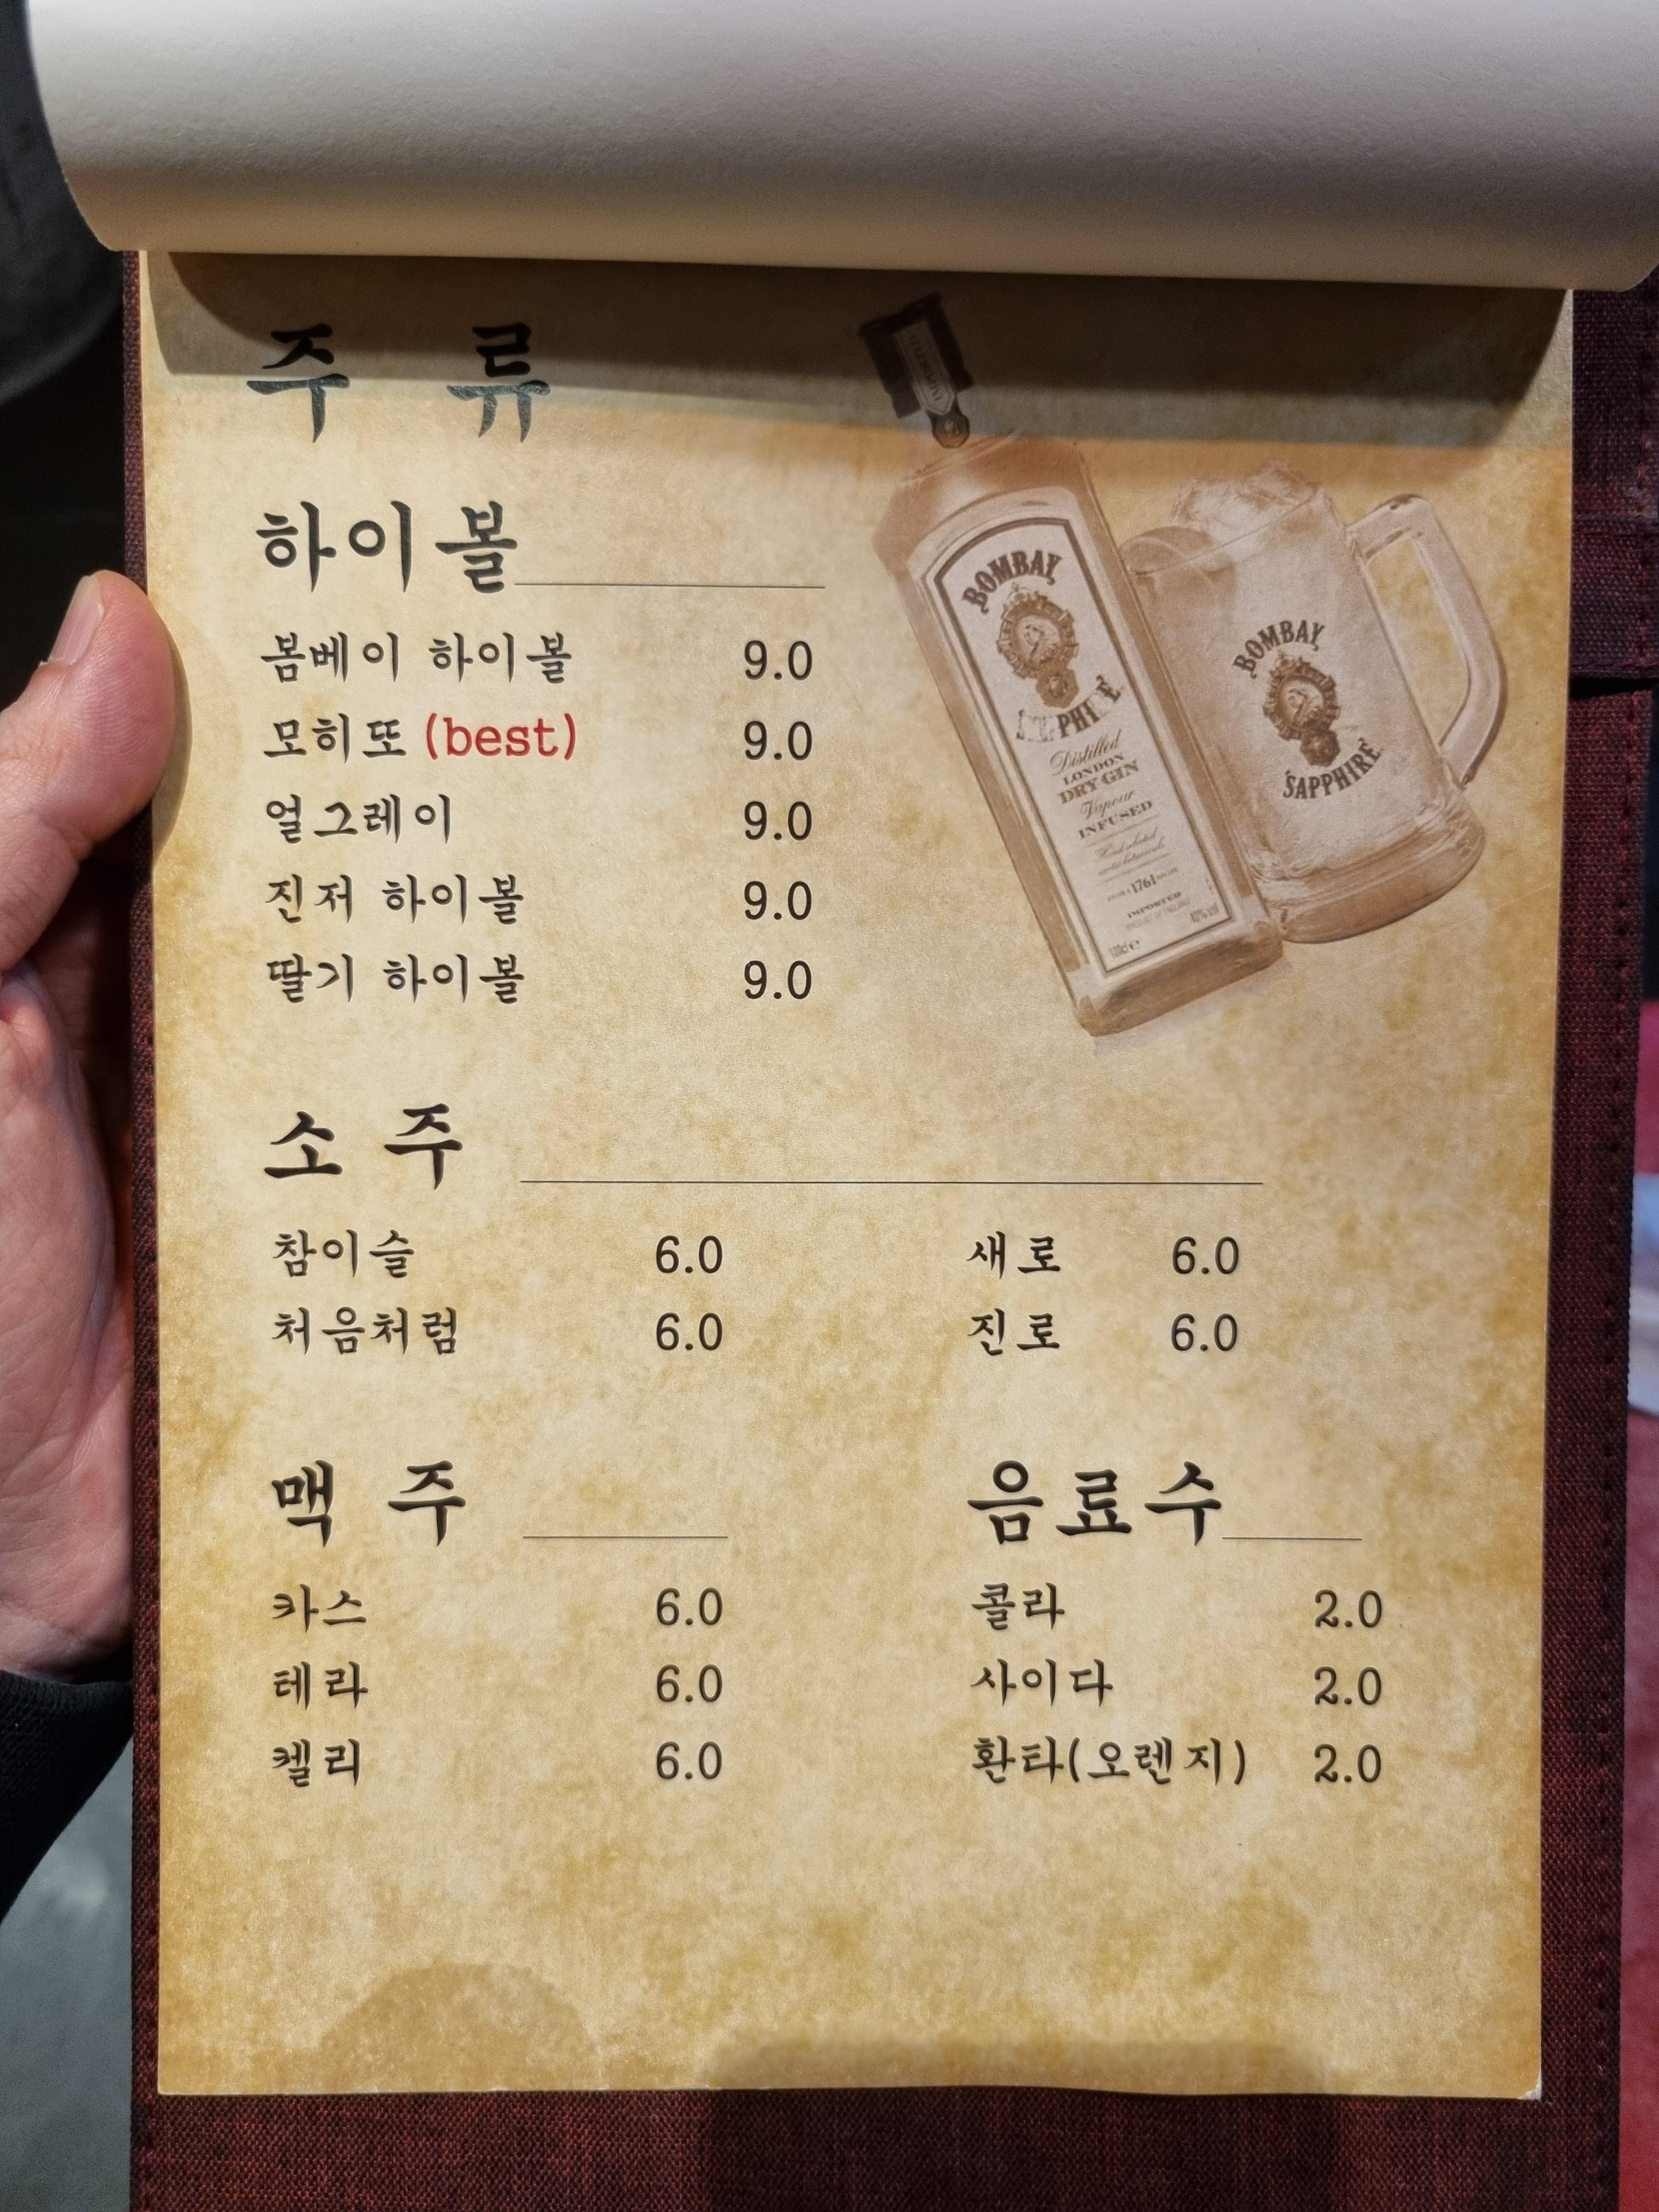 주 류
하이볼
봄베이 하이볼 9.0
모히또 (best) 9.0
얼그레이 9.0
진저 하이볼 9.0
딸기 하이볼 9.0
BOMBAY
SAPPHIRE
Distilled
LONDON
DRY GIN
Vapour
INFUSED
1761
IMPORTED
BOMBAY
SAPPHIRE
소 주
참이슬 6.0 새로 6.0
처음처럼 6.0 진로 6.0
맥 주
카스 6.0
테라 6.0
켈리 6.0
음료수
콜라 2.0
사이다 2.0
환타(오렌지) 2.0